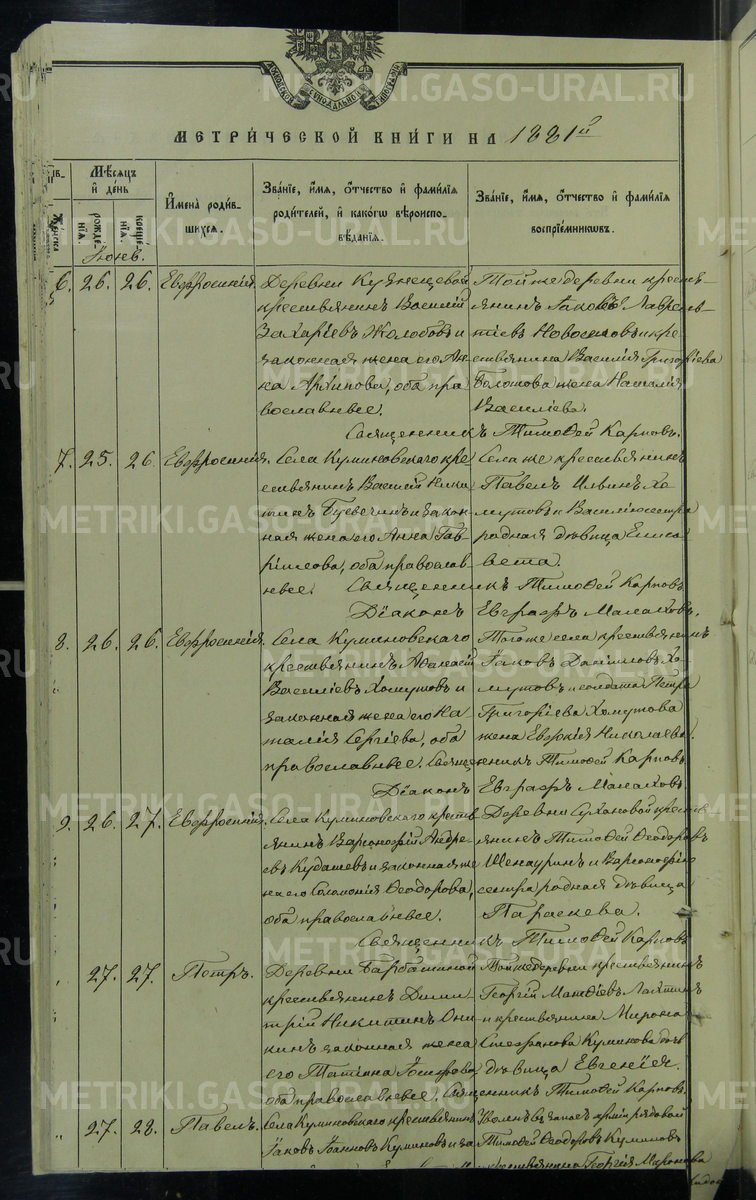 МЕТРИЧЕСКОЙ КНИГИ НА 1881й
Мѣсяцъ и день
рожденія.
крещенія.
Имена родившихся.
Званіе, имя, отчество и фамилія родителей, и какого вѣроисповѣданія.
Званіе, имя, отчество и фамилія воспріемниковъ.
Іюнь.
6. 26. 26. Евфросинія.
Деревни Кузнецовой
крестьянинъ Василій
Захаріевъ Жолобовъ и
законная жена его Ан-
на Архипова, оба пра
вославные.
Тойже деревни кресть-
янинъ Іаковъ Лаврен-
тіевъ Новоселовъ и кре-
стьянина Василія Григоріева
Болотова жена Наталія
Василіева.
Священникъ Тимофей Карповъ.
7. 25. 26. Евфросинія.
Села Куминовскаго кре
стьянинъ Василій Ники
тинъ и закон-
ная жена его Анна Гав-
ріилова, оба православ-
ные.
Села же крестьянинъ
Павелъ Ильинъ Хо-
мутовъ и Василію сестра
родная дѣвица Елиса
вета.
Священникъ Тимофей Карповъ
Діаконъ Евграфъ Малаховъ.
8. 26. 26. Евфросинія.
Села Куминовскаго
крестьянинъ Аѳанасій
Василіевъ Хомутовъ и
законная жена его На
талія Сергіева, оба
православные.
Тогоже села крестьянинъ
Іаковъ Даніиловъ Хо-
мутовъ и солдата Петра
Григоріева Хомутова
жена Евфимія Николаева.
Священникъ Тимофей Карповъ
Діаконъ Евграфъ Малаховъ
9. 26. 27. Евфросинія.
Села Куминовскаго кресть
янинъ Варсонофій Андре-
евъ Кудашевъ и законная же
на его Соломонія Ѳеодорова,
оба православные.
Деревни Сухановой кресть
янинъ Тимофей Ѳеодоровъ
и Варсонофію
сестра родная дѣвица
Параскева.
Священникъ Тимофей Карповъ
27. 27. Петръ.
Деревни Барбашиной
крестьянинъ Дими-
трій Никитинъ Они-
кинъ законная жена
его Татіана Іосифова
оба православные.
Тойже деревни крестьянинъ
Георгій Матвѣевъ Лахтинъ
и крестьянина Мирона
Стефанова Куминова дочь
дѣвица Евгенія.
Священникъ Тимофей Карповъ.
27. 28. Павелъ.
Села Куминовскаго крестьянинъ
Іаковъ Іоанновъ Куминовъ и за
Уволен. въ запасъ арміи рядовой
Тимофей Ѳеодоровъ Куминовъ
и крестьянина Георгія Миронова